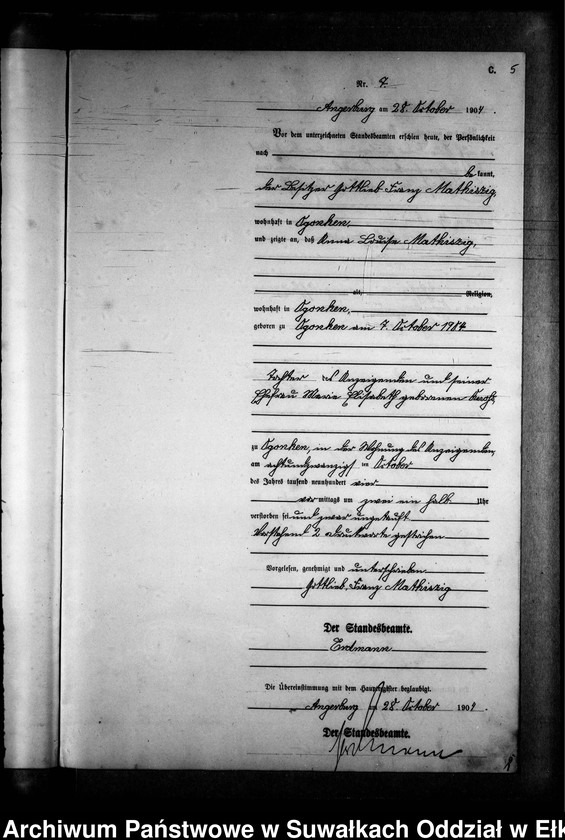 C. 5
Nr. 7.
Angerburg am 28. October 1904.
Vor dem unterzeichneten Standesbeamten erschien heute, der Persönlichkeit
nach
be kannt,
der Besitzer Gottlieb Franz Mathiszig,
wohnhaft in Ogonken,
und zeigte an, daß Anna Louise Mathiszig,
alt, Religion,
wohnhaft in Ogonken,
geboren zu Ogonken am 7. October 1904
Tochter des Anzeigenden und seiner
Ehefrau Marie Elisabeth geborenen
zu Ogonken, in der Wohnung des Anzeigenden,
am achtundzwanzigst en October
des Jahres tausend neunhundert vier
vor mittags um zwei ein halb Uhr
verstorben sei und zwar ungetauft.
Vorstehend 2 Druckworte gestrichen.
Vorgelesen, genehmigt und unterschrieben
Gottlieb, Franz Mathiszig
Der Standesbeamte.
Erdmann
Die Übereinstimmung mit dem Hauptregister beglaubigt.
Angerburg am 28. October 1904.
Der Standesbeamte.
Erdmann
Archiwum Państwowe w Suwałkach Oddział w Ełk